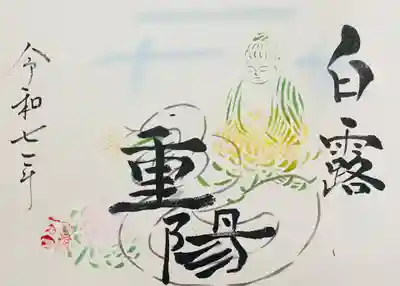 白露
重陽
令和七年